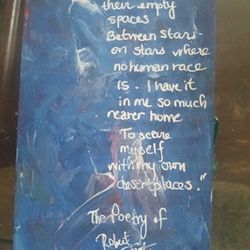 their empty
spaces
Between stars-
on stars where
no human race
is. I have it
in me so much
nearer home
To scare
myself
with my own
desert places."
The Poetry of
Robert